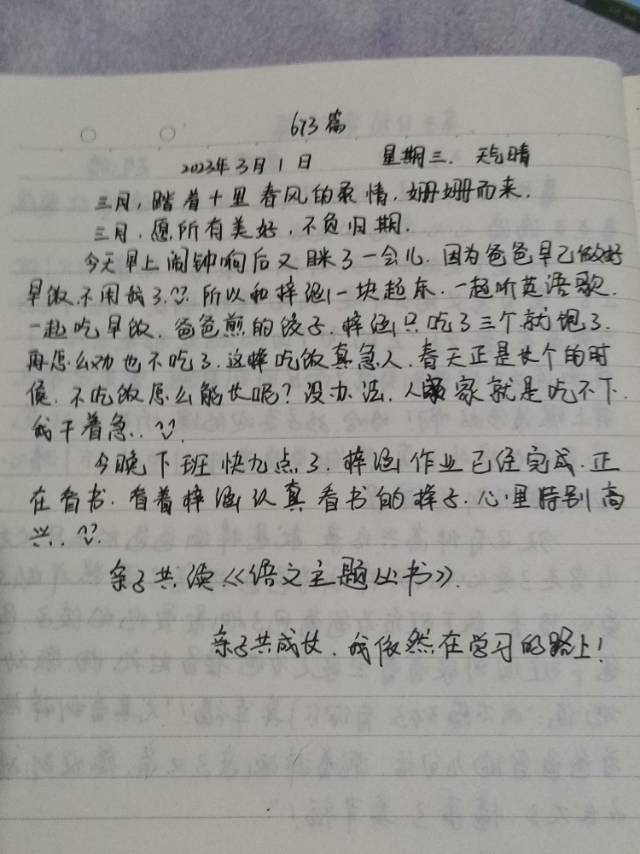 673篇
2023年3月1日 星期三. 天气晴
三月,踏着十里春风的柔情,姗姗而来.
三月,愿所有美好,不负归期.
今天早上闹钟响后又眯了一会儿.因为爸爸早已做好
早饭.不用我了.所以和梓涵一块起来.一起听英语歌.
一起吃早饭.爸爸煎的饺子.梓涵只吃了三个就饱了.
再怎么劝也不吃了.这样吃饭真急人.春天正是长个的时
候.不吃饭怎么能长呢?没办法.人家就是吃不下.
我干着急..
今晚下班快九点了.梓涵作业已经完成.正
在看书.看着梓涵认真看书的样子.心里特别高
兴..
亲子共读《语文主题丛书》.
亲子共成长.我依然在学习的路上!